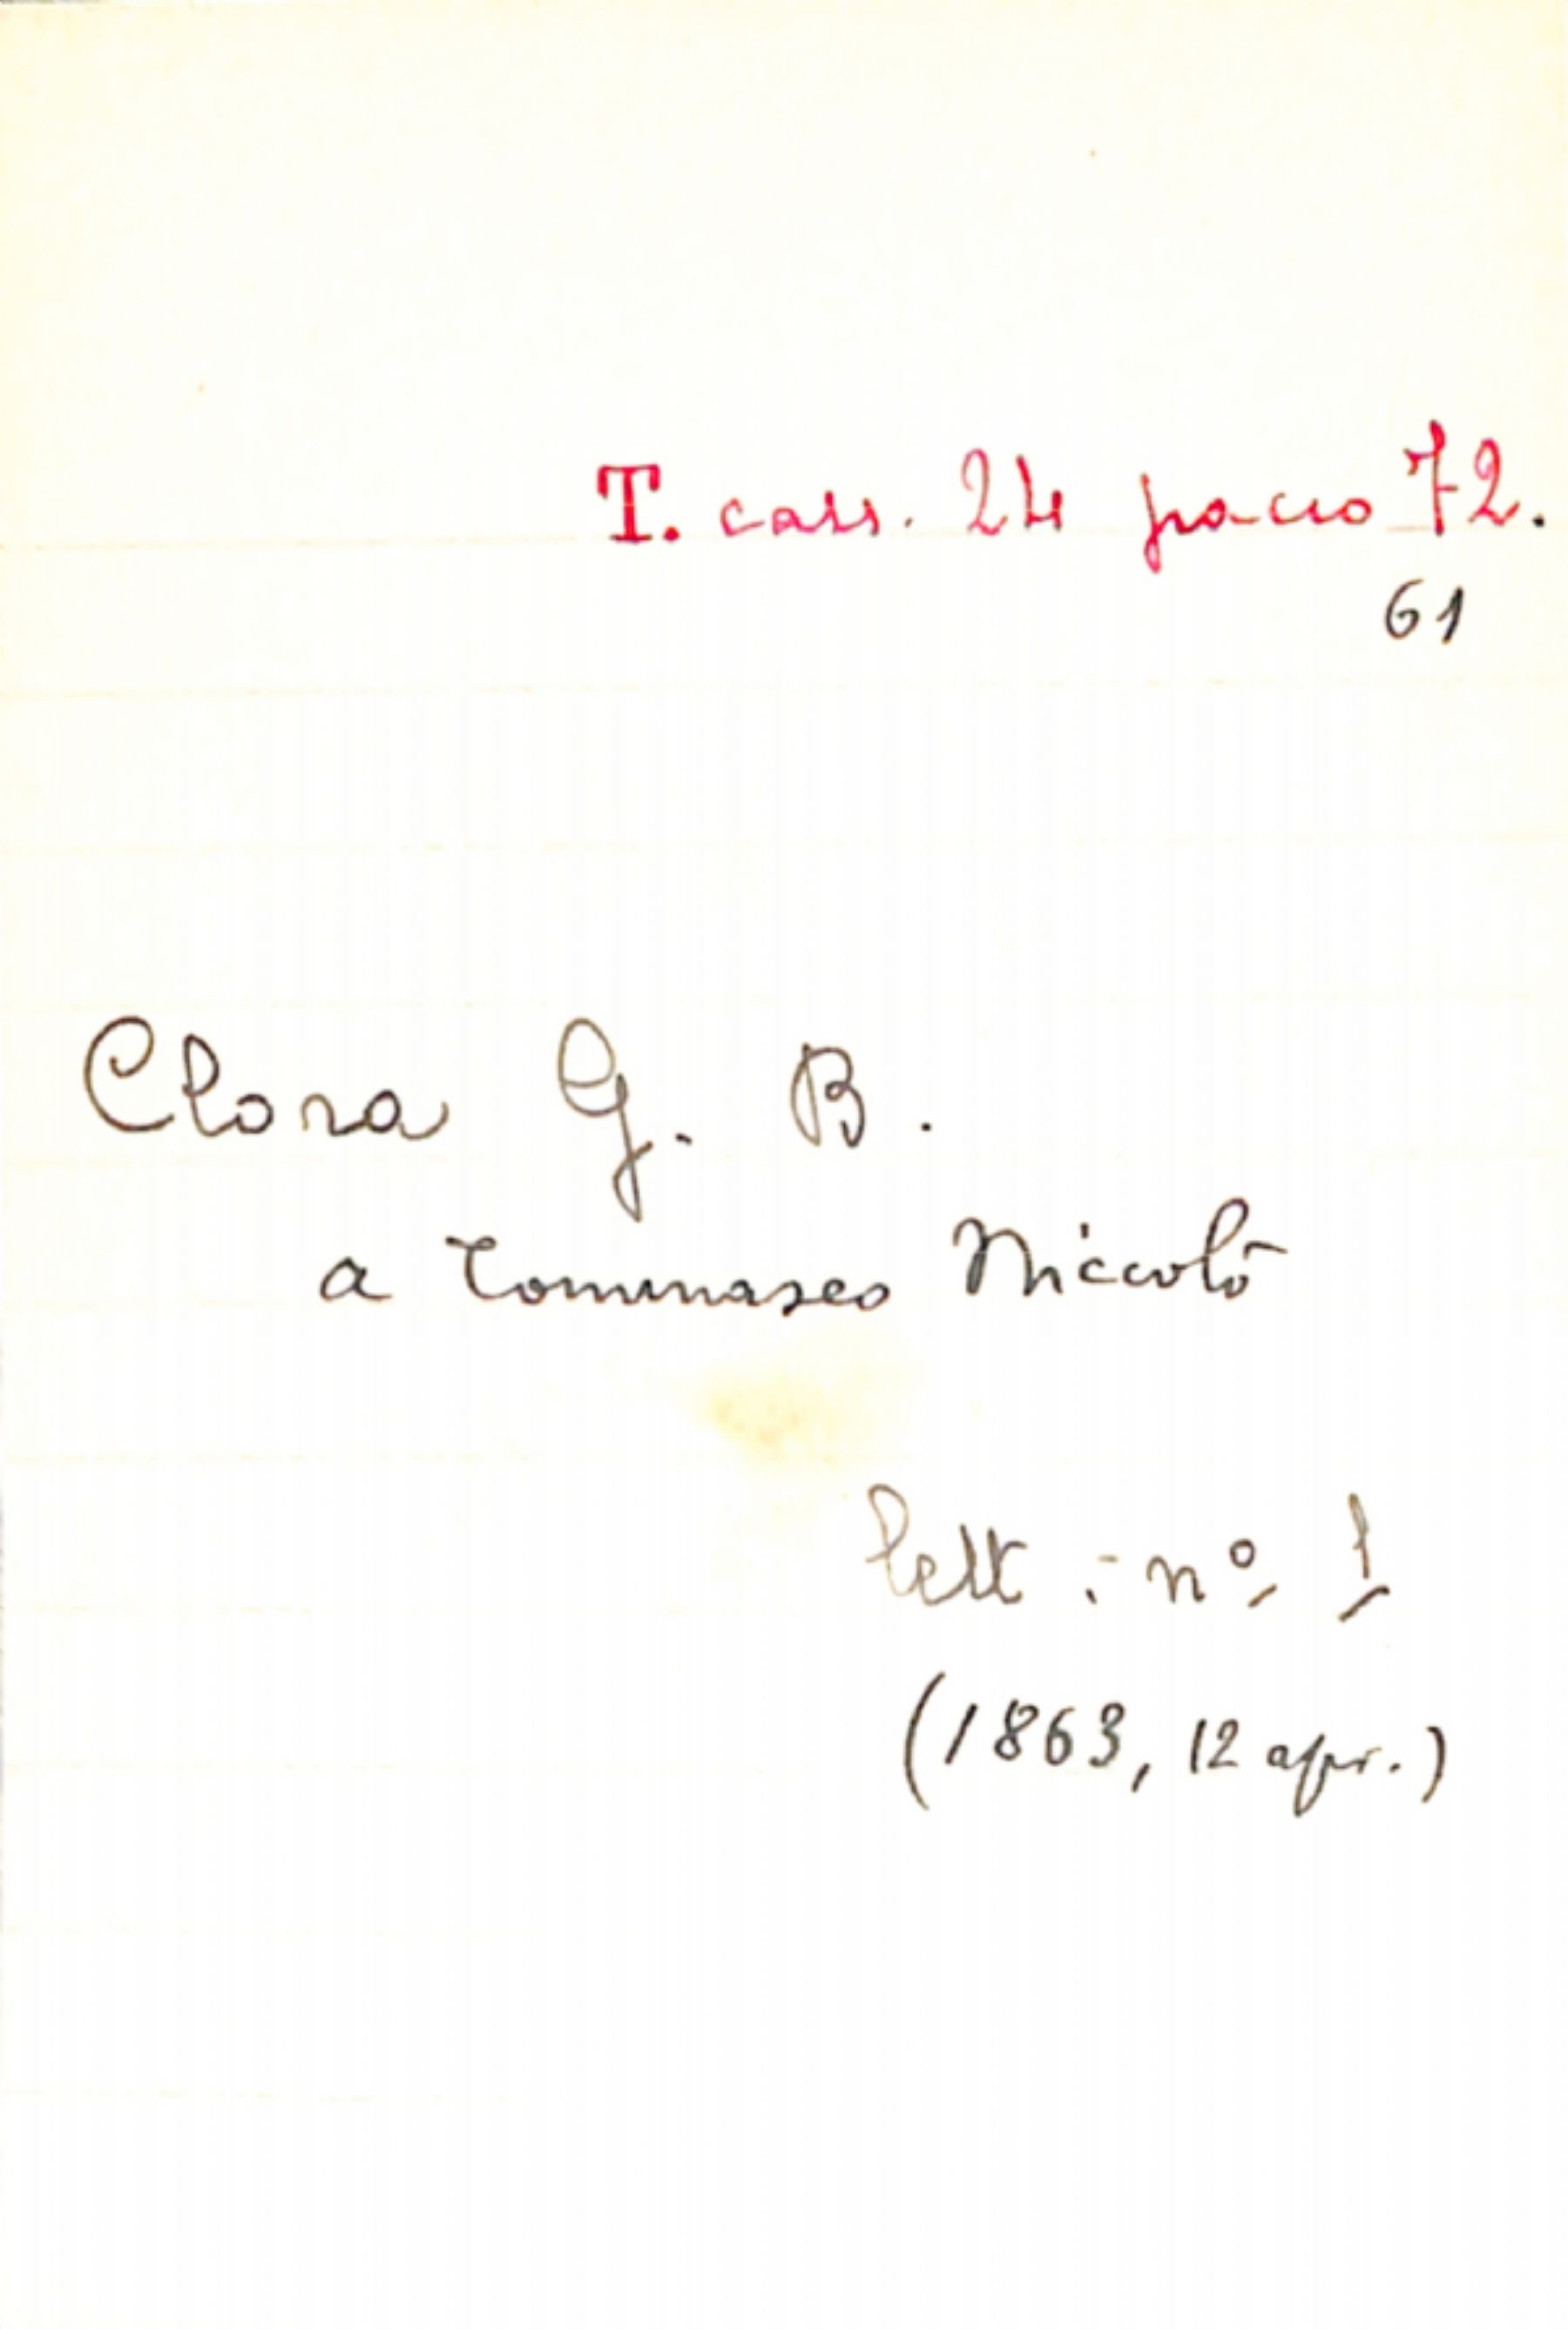 T. cass. 24 pacco 72.
61
Clora G. B.
a Tommaseo Niccolò
lett. : nº 1
(1863, 12 apr.)